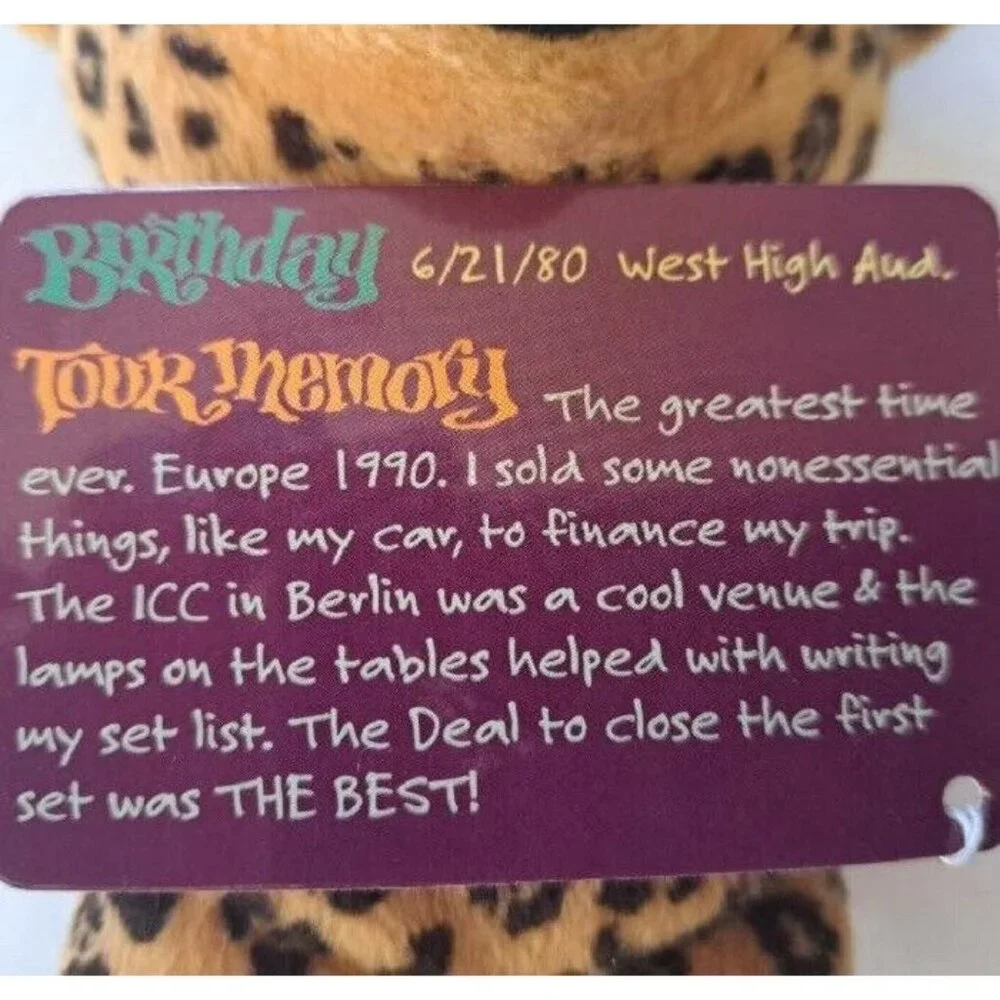 Birthday 6/21/80 West High Aud.
Tour Memory The greatest time
ever. Europe 1990. I sold some nonessential
things, like my car, to finance my trip.
The ICC in Berlin was a cool venue & the
lamps on the tables helped with writing
my set list. The Deal to close the first
set was THE BEST!